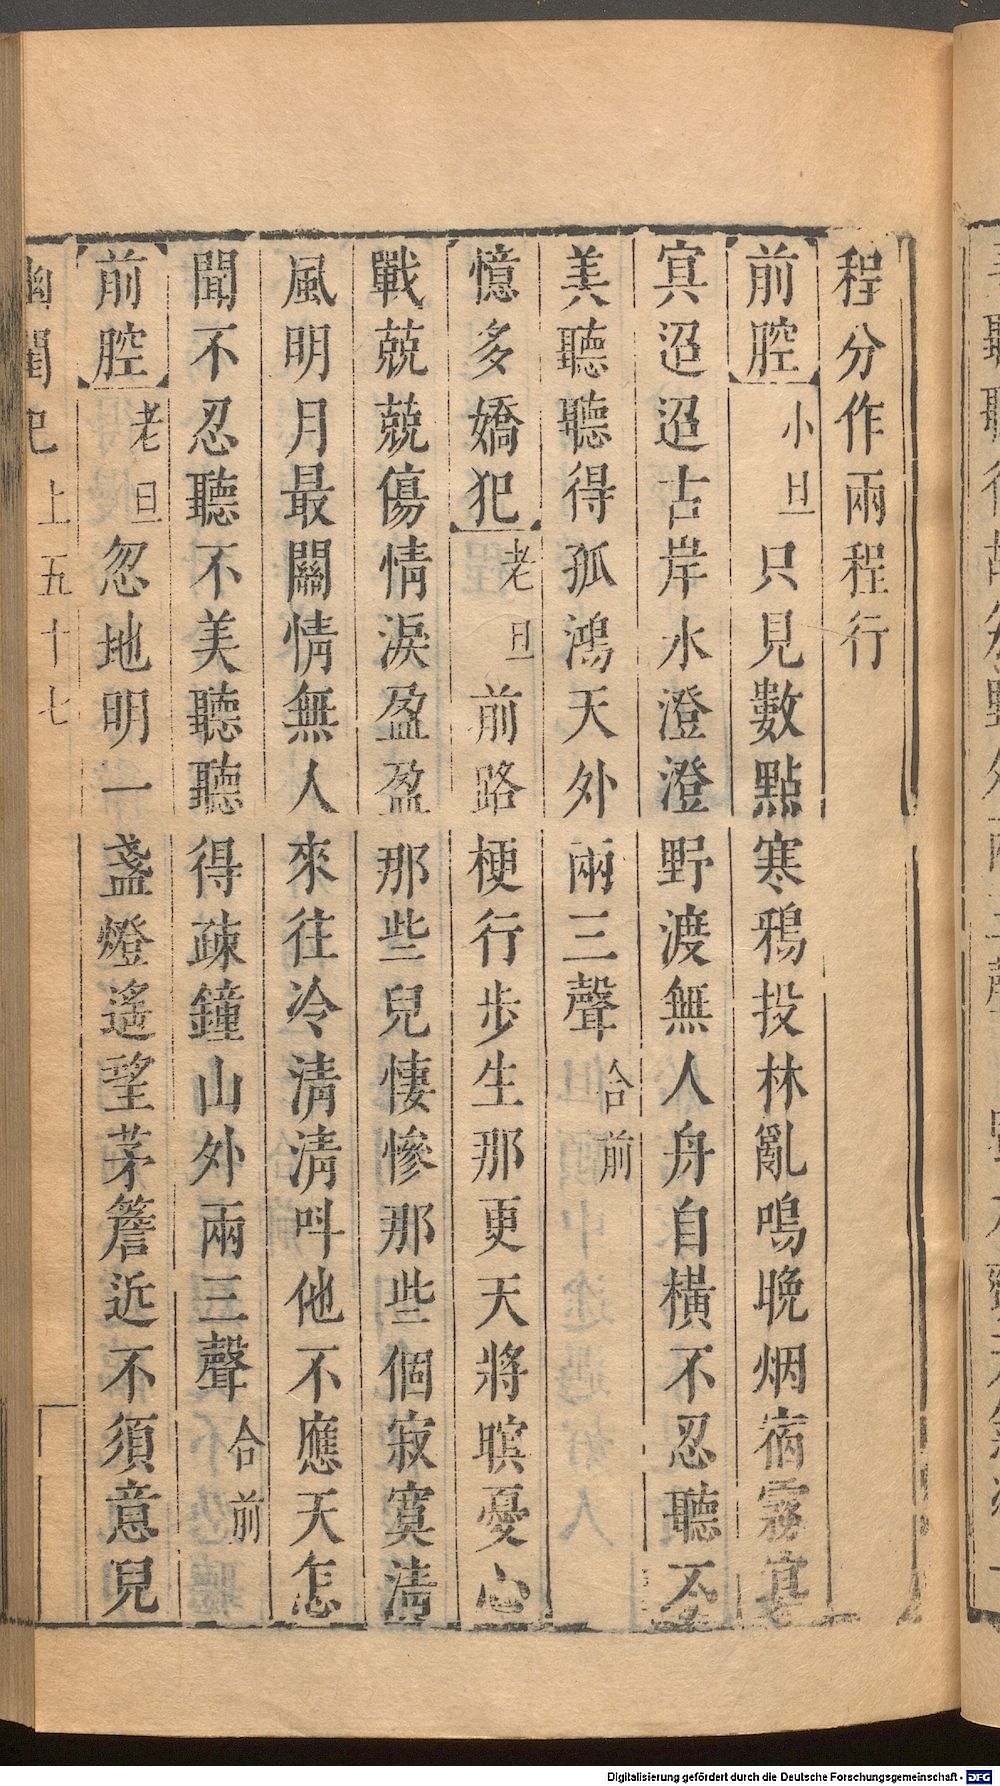 程分作兩程行
前腔 小旦 只見數點寒鴉投林亂鳴晚烟宿霧冥
冥迢迢古岸水澄澄野渡無人舟自橫不忍聽不
美聽聽得孤鴻天外兩三聲 合前
憶多嬌犯 老旦 前路梗行步生那更天將暝憂心
戰兢兢傷情淚盈盈那些兒悽慘那些個寂寞清
風明月最關情無人來往冷清清呌他不應天怎
聞不忍聽不美聽聽得疎鐘山外兩三聲 合前
前腔 老旦 忽地明一盞燈遙望茅簷近不須意兒
幽閨記 上五十七
Digitalisierung gefördert durch die Deutsche Forschungsgemeinschaft - DFG